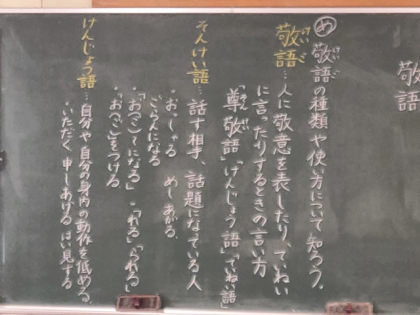 敬語
め 敬語の種類や使い方について知ろう。
けいご
敬語…人に敬意を表したり、ていねい
けいご
に言ったりするときの言い方
「尊敬語」「けんじょう語」「ていねい語」
そん
そんけい語…話す相手、話題になっている人
・おっしゃる めしあがる
ごらんになる
・「お(ご)~になる」・「れる」「られる」
・「お(ご)」をつける。
けんじょう語…自分や自分の身内の動作を低める。
・いただく 申しあげる はい見する